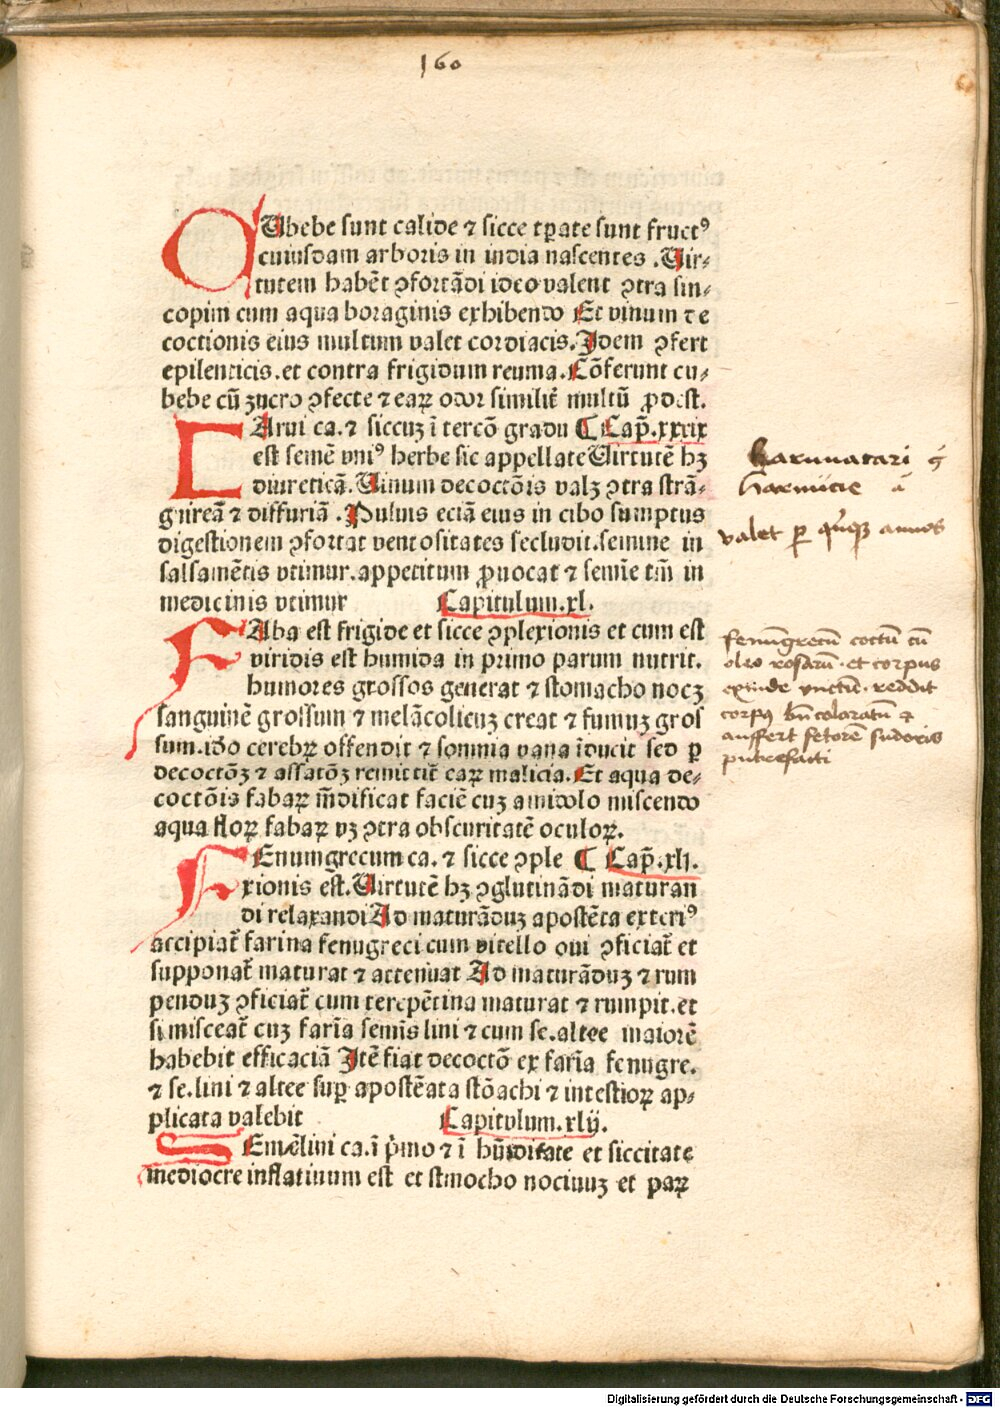 160
CUbebe sunt calide ⁊ sicce tꝑate sunt fructꝰ
cuiusdam arboris in india nascentes .Uir⸗
tutem habēt ꝯfortādi ideo valent ꝯtra sin⸗
copim cum aqua boraginis exhibendo Et vinum de
coctionis eius multum valet cordiacis. Idem ꝯfert
epilenticis.et contra frigidum reuma. Cōferunt cu⸗
bebe cū zucro ꝯfecte ⁊ eaꝝ odor similit̄ multū ꝓdest.
CArui ca. ⁊ siccuꝫ ī tercō gradu ¶ Cap̄.xxxix
est semē vniꝰ herbe sic appellate Uirtutē hꝫ
diureticā. Uinum decoctōis valꝫ ꝯtra strā⸗
guireā ⁊ dissuriā . Puluis eciā eius in cibo sumptus
digestionem ꝯfortat ventositates secludit.semine in
salsamētis vtimur.appetitum ꝓuocat ⁊ semīe tm̄ in
medicinis vtimur Capitulum.xl.
FAba est frigide et sicce ꝯplexionis et cum est
viridis est humida in primo parum nutrit.
humores grossos generat ⁊ stomacho nocꝫ
sanguinē grossum ⁊ melācolicuꝫ creat ⁊ fumuꝫ gros
sum.idō cerebꝝ offendit ⁊ somnia vana īducit sed ꝑ
decoctōꝫ ⁊ assatōꝫ remittit̄ eaꝝ malicia. Et aqua de⸗
coctōis fabaꝝ m̄dificat faciē cuꝫ amidolo miscendo
aqua floꝝ fabaꝝ vꝫ ꝯtra obscuritatē oculoꝝ.
FEnumgrecum ca. ⁊ sicce ꝯple ¶ Cap̄.xlj.
xionis est̄. Uirtutē hꝫ ꝯglutinādi maturan
di relaxandi Ad maturāduꝫ apostēta exteriꝰ
accipiat̄ farina fenugreci cum vitello oui ꝯficiat̄ et
supponat̄ maturat ⁊ attenuat Ad maturāduꝫ ⁊ rum
penduꝫ ꝯficiat̄ cum terepētina maturat ⁊ rumpit.et
si misceat̄ cuꝫ farīa semīs lini ⁊ cum se.altee maiorē
habebit efficaciā Itē fiat decoctō ex farīa fenugre.
⁊ se.lini ⁊ altee suꝑ apostēata stōachi ⁊ intestioꝝ ap⸗
plicata valebit Capitulum.xlij.
SEmēlini ca.ī p̄mo ⁊ ī hūiditate et siccitate
mediocre inflatiuum est et stmocho nociuuꝫ et paꝝ
valet ꝑ annos
fenūgrecū coctū cū
oleo rosarū · et corpus
exinde vnctū · reddit
corpꝰ bn̄ coloratū ⁊
auffert fetorē sudoris
putrefacti
Digitalisierung gefördert durch die Deutsche Forschungsgemeinschaft - DFG